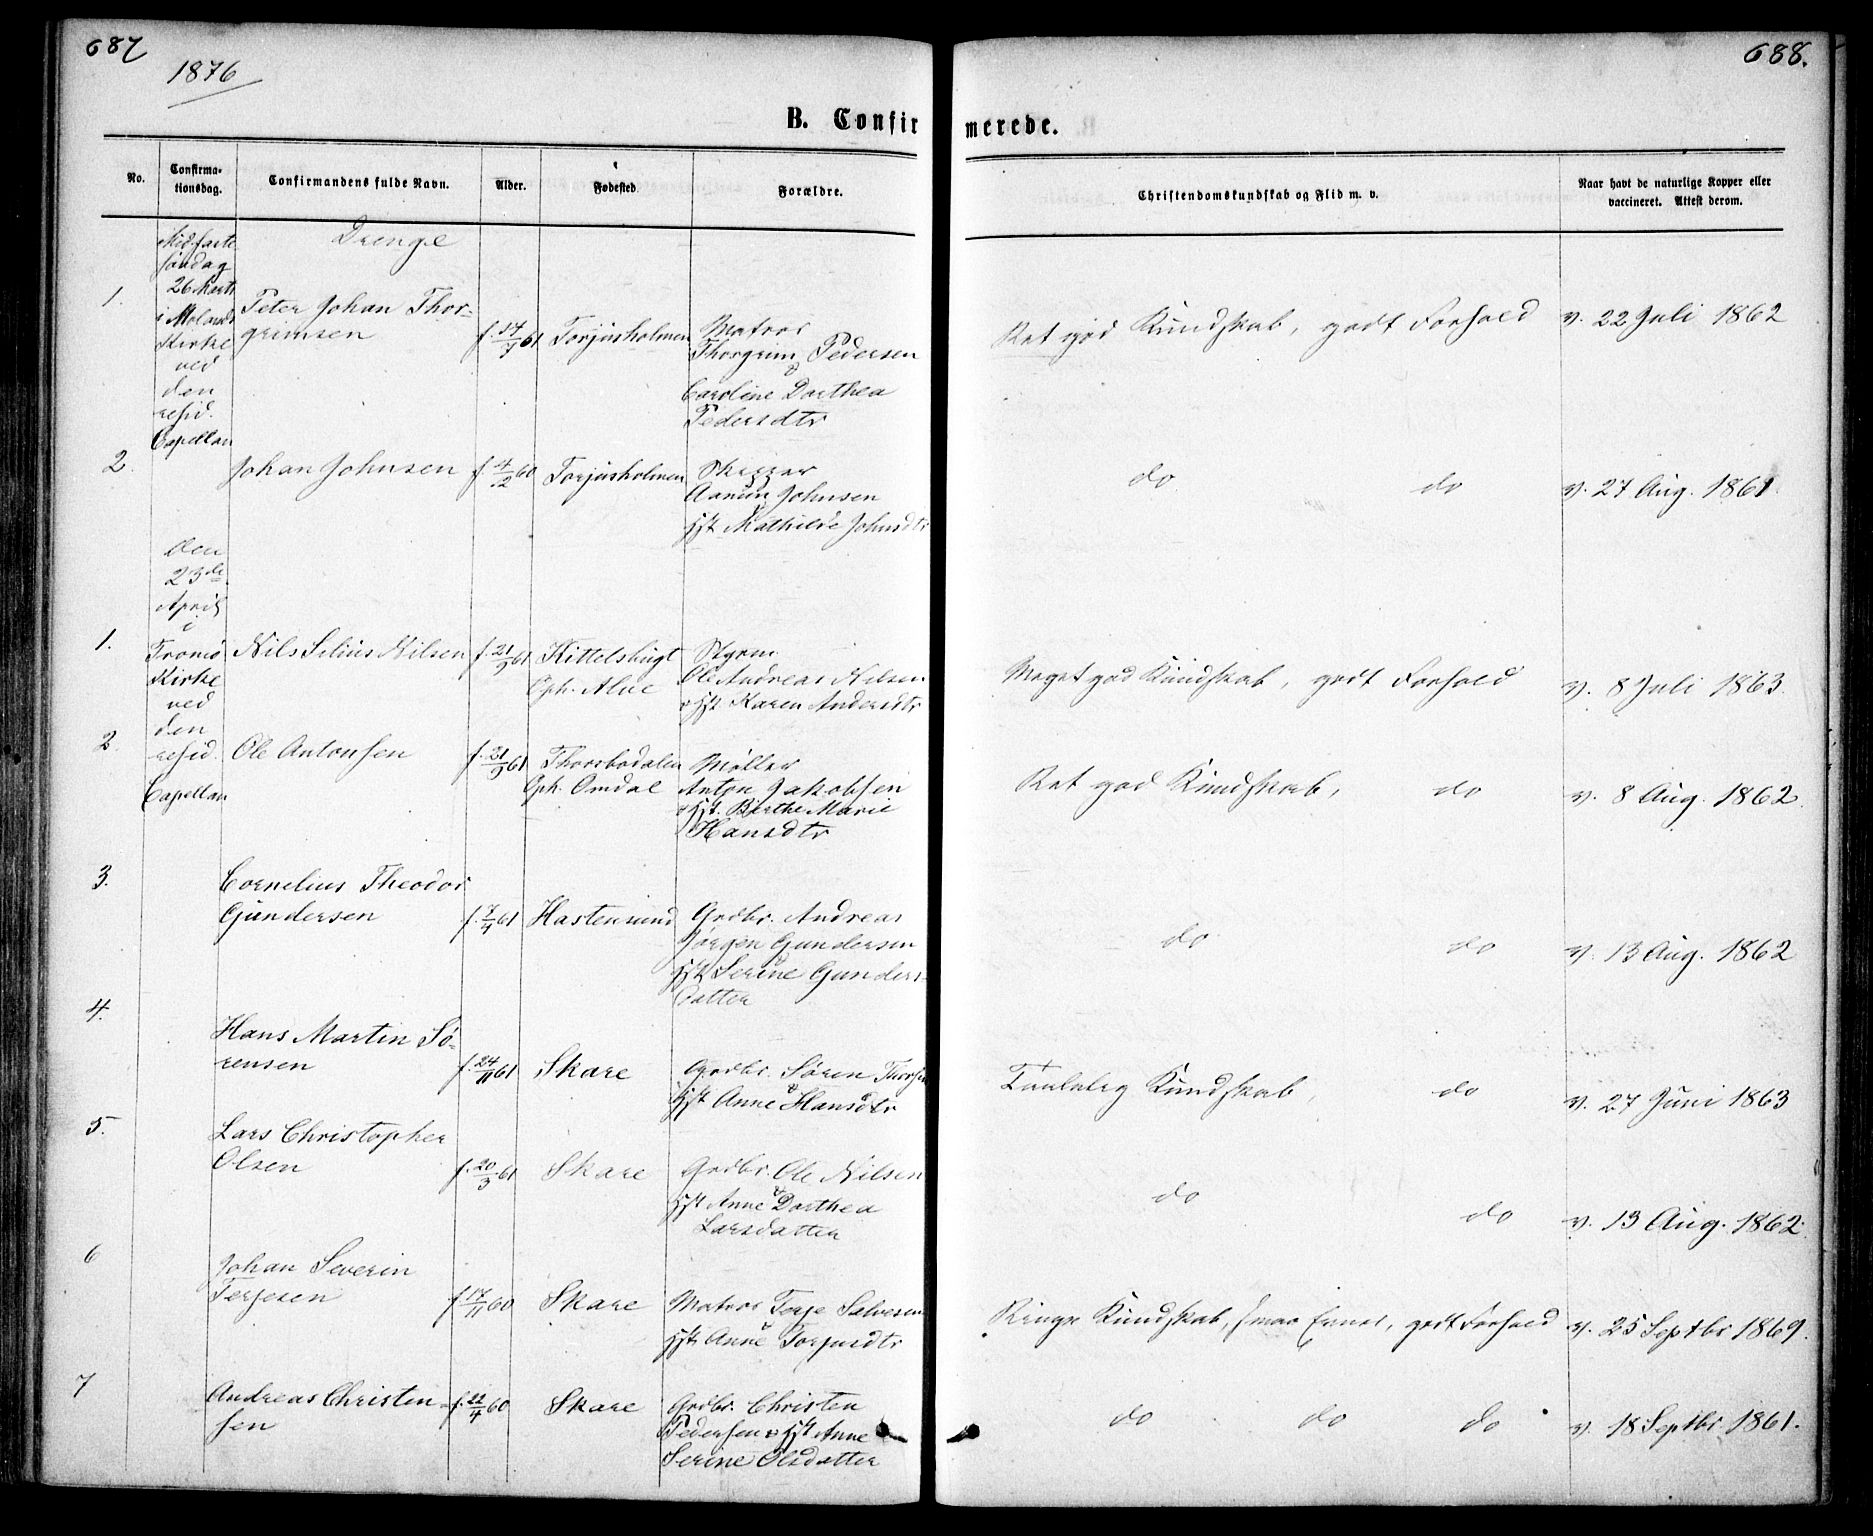 687
1876
688.
B. Confirmerede.
No.
Confirma-
tionsdag.
Confirmandens fulde Navn.
Alder.
Fødested.
Forældre.
Christendomskundskab og Flid m. v.
Naar havt de naturlige Kopper eller
vaccineret. Attest derom.
Drenge
Midfaste
søndag
26 Marts
i Molands
Kirke
ved
den
resid.
Capellan
1.
Peter Johan Thor-
grimsen
f. 14/7 61
Torjusholmen
Matros
Thorgrim Pedersen
&
Caroline Dorthea
Pedersdtr
Ret god Kundskab, godt Forhold
v. 22 Juli 1862
2.
Johan Johnsen
f. 4/2 60
Torjusholmen
Skipper
Aanun Johnsen
Hst Mathilde Johnsdtr
do do
v. 27 Aug. 1861.
den
23de
April
i
Tromø
Kirke
ved
den
resid.
Capellan
1.
Nils Selius Nilsen
f. 21/9 61
Kittelsbugt
Oph. Alve
Styrm.
Ole Andreas Nilsen
& Hst Karen Andersdtr
Meget god Kundskab, godt Forhold
v. 8 Juli 1863.
2.
Ole Antonsen
f. 21/9 61
Thorsbodalen
Oph. Omdal
Møller
Anton Jakobsen
& Hst. Birthe Marie
Hansdtr
Ret god Kundskab, do
v. 8 Aug. 1862.
3.
Cornelius Theodor
Gundersen
f. 7/4 61
Hastensund
Grdbr. Andreas
Jørgen Gundersen
Hst Serine Gunders-
datter
do do
v. 13 Aug. 1862
4.
Hans Martin Sø-
rensen
f. 24/11 61
Skare
Grdbr. Søren
&
Hst Anne Hansdtr
Taalelig Kundskab, do
v. 27 Juni 1863
5.
Lars Christopher
Olsen
f. 20/3 61
Skare
Grdbr. Ole Nilsen
&
Hst Anne Dorthea
Larsdatter
do do
v. 13 Aug. 1862.
6
Johan Severin
Terjesen
f. 17/11 60
Skare
Matros Terje Salvesen
Hst Anne Torjusdtr
Ringe Kundskab, smaa Evner, godt Forhold
v. 25 Septbr 1869.
7
Andreas Christen-
sen
f. 22/4 60
Skare
Grdbr. Christen
Pedersen & Hst Anne
Serine Olsdatter
do do do
v. 18 Septbr 1861.